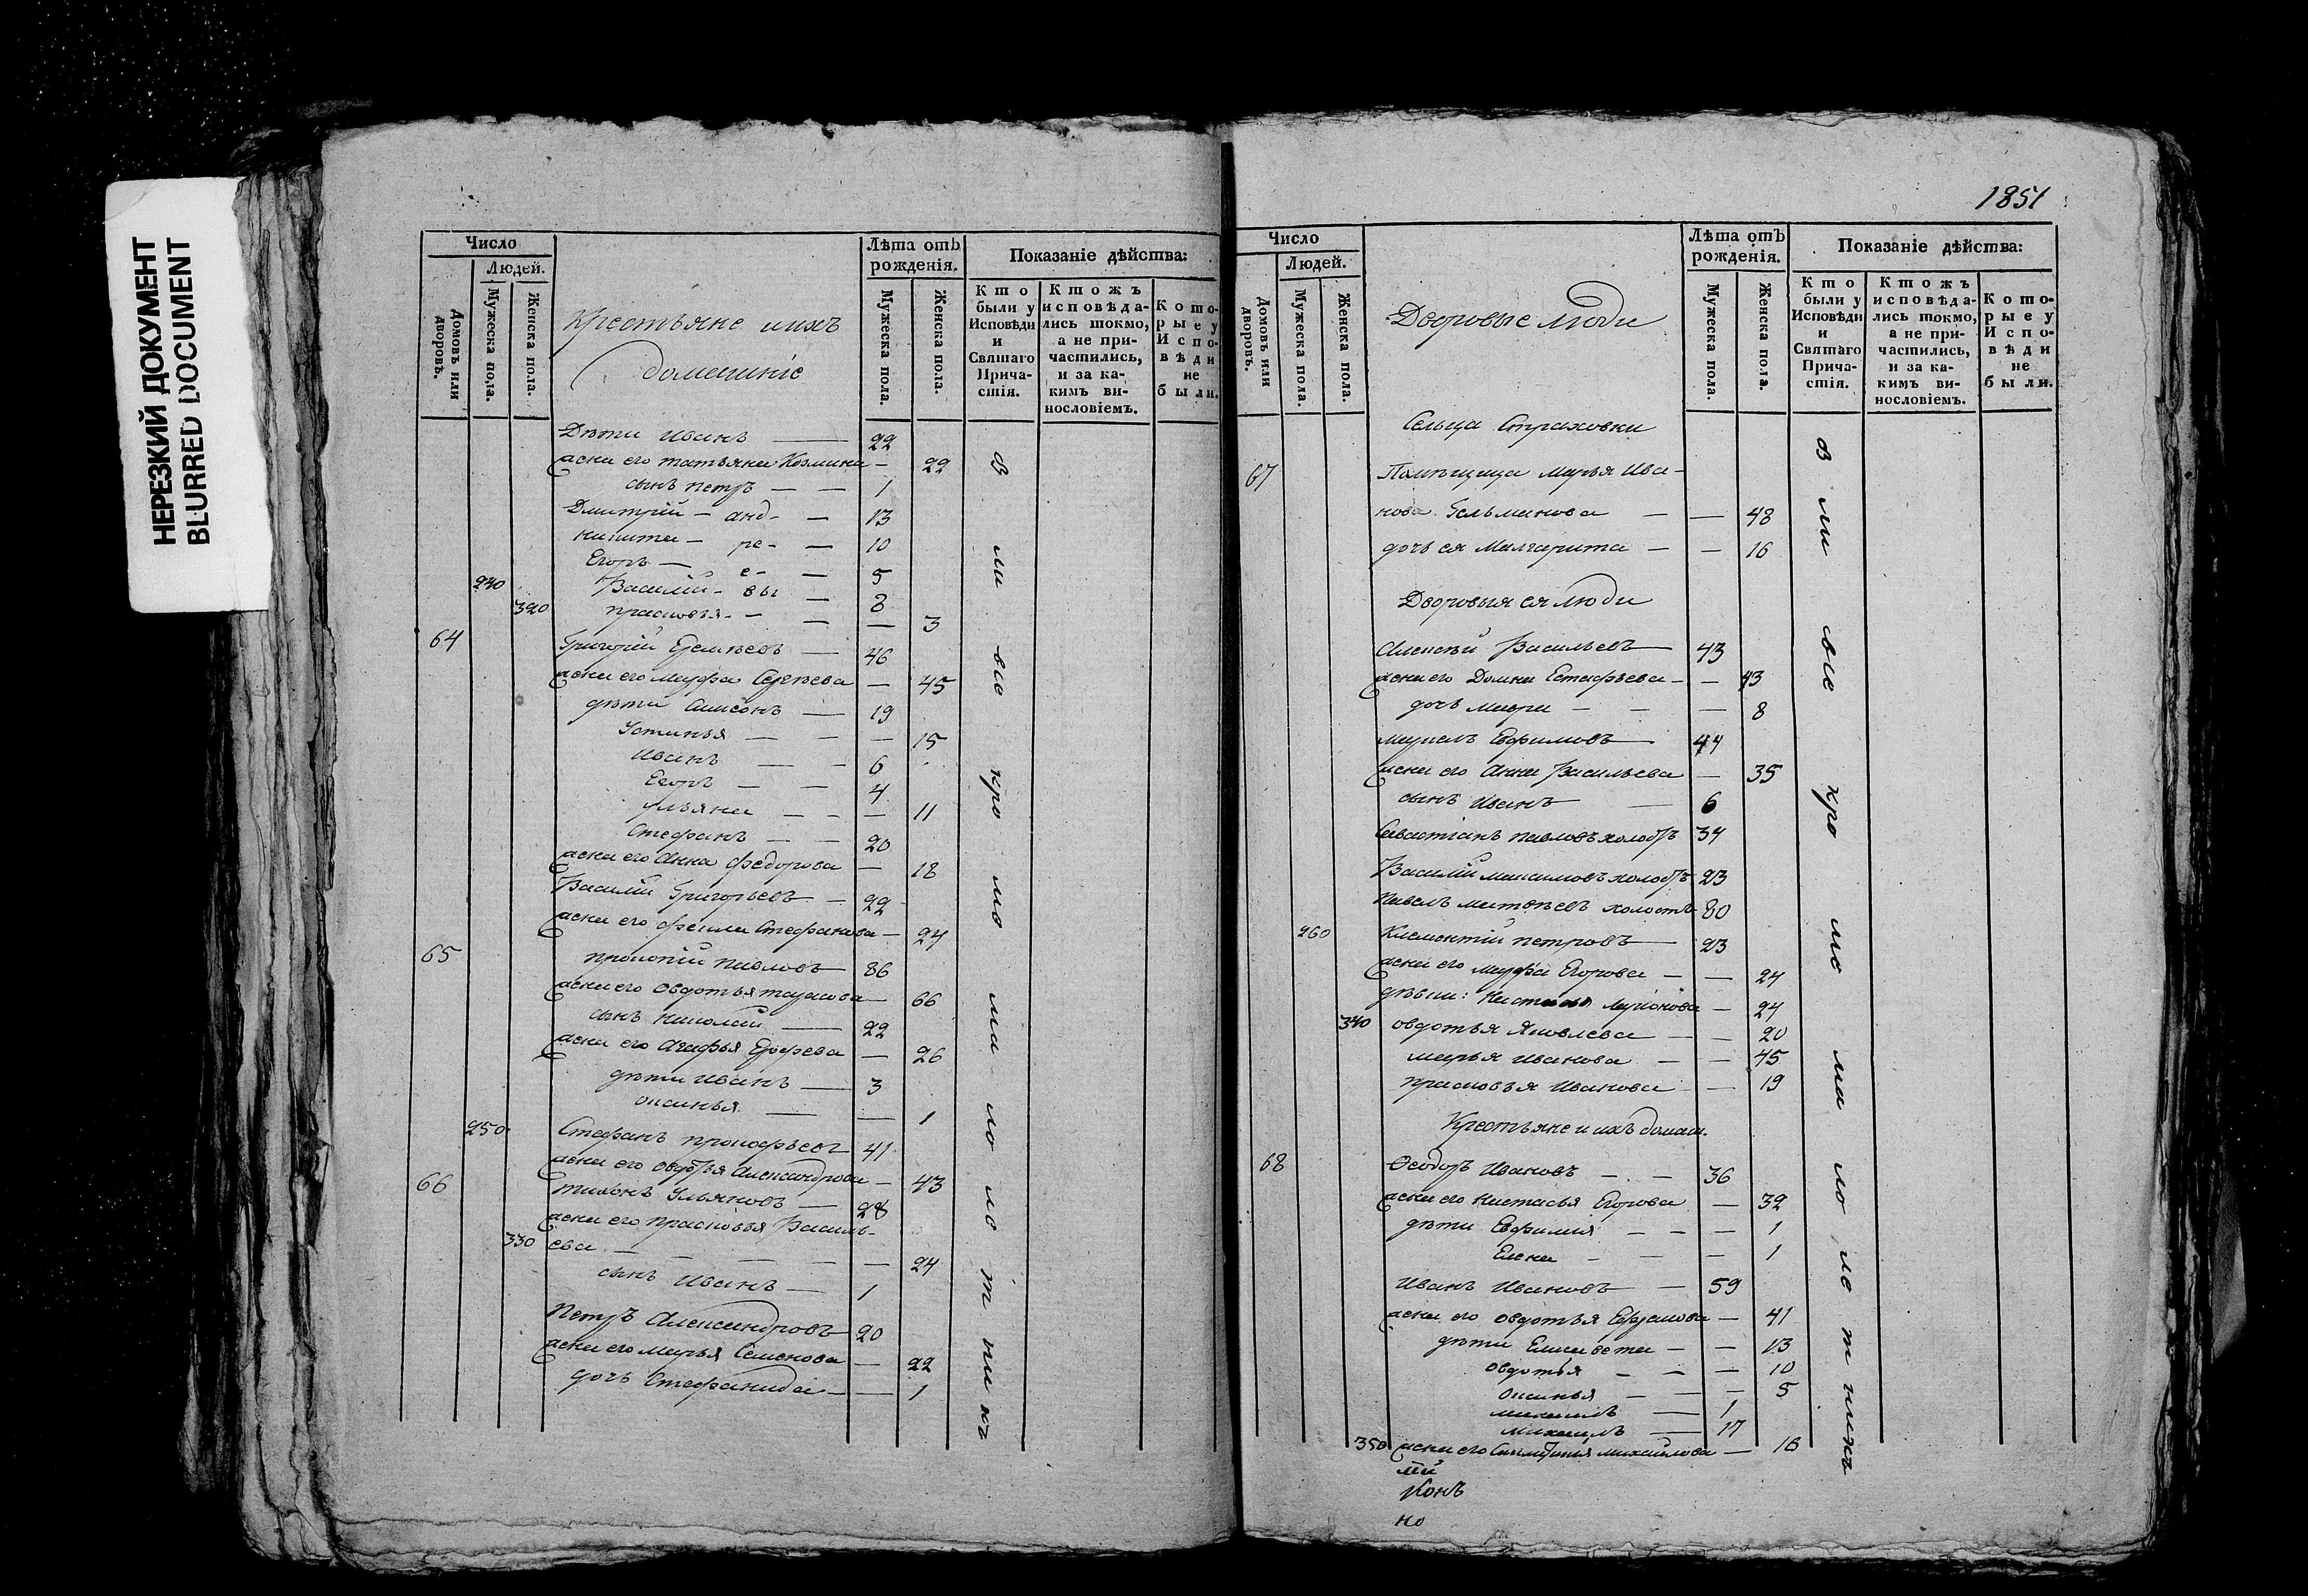 НЕРЕЗКИЙ ДОКУМЕНТ
BLURRED DOCUMENT
Число
Людей.
Домовъ или дворовъ.
Мужеска пола.
Женска пола.
Крестьяне и ихъ
домашніе
Лѣта отъ рожденія.
Мужеска пола.
Женска пола.
Показаніе дѣйства:
Кто были у Исповѣди и Святаго Причастія.
Ктожъ исповѣдались токмо, а не причастились, и за какимъ винословіемъ.
Которые у Исповѣди не были.
Дѣти Иванъ — 22
жена его татьяна Козмина — 22
сынъ петръ — — 1
Дмитрій — анд- — 13
никита — ре- — 10
Егоръ — е- — 5
240 Василій — вы — 8
320 прасковья — — — 3
64 Григорій — 46
жена его марфа Сергѣева — 45
дѣти Самсонъ — 19
Устинья — — — 15
Иванъ — — 6
Егоръ — — 4
ульяна — — — 11
Стефанъ — — 20
жена его Анна федорова — 18
Василій Григорьевъ — 22
жена его фекла Стефанова — 24
65 прокопій павловъ — 86
жена его овдотья тарасова — 66
сынъ николай — 22
жена его Агафья — 26
дѣти Иванъ — 3
оксинья — — 1
250 Стефанъ прокофьевъ 41
жена его овдотья Александрова — 43
66 тихонъ Ульяновъ — 28
жена его прасковья Василь-
330 ева — — — — 24
сынъ Иванъ — 1
Петръ Александровъ 20
жена его марья Семенова — 22
дочь Стефанида — — 1
в
ми
вы
кро
мѣ
ма
ло
ле
т
ни
хъ
1851
Число
Людей.
Домовъ или дворовъ.
Мужеска пола.
Женска пола.
Дворовые люди
Лѣта отъ рожденія.
Мужеска пола.
Женска пола.
Показаніе дѣйства:
Кто были у Исповѣди и Святаго Причастія.
Ктожъ исповѣдались токмо, а не причастились, и за какимъ винословіемъ.
Которые у Исповѣди не были.
Сельца Страховки
67 Помѣщица марья Ива-
нова Гельманова — — 48
дочь ея Маргарита — — 16
Дворовыя ея люди
Алексѣй Васильевъ — 43
жена его Домна Естафьева — — 43
дочь марья — — — 8
Ефимовъ — 44
жена его Анна Васильева — 35
сынъ Иванъ — 6
Севастіанъ павловъ холостъ 34
Василій максимовъ холостъ 23
Павелъ матвѣевъ холостъ 80
260 Климентій петровъ — 23
жена его марфа Егорова — — 24
дѣвки: настасья Ларіонова — 24
340 овдотья Яковлева — — 20
марья Иванова — — 45
прасковья Иванова — 19
Крестьяне и ихъ домаш.
68 Ѳеодоръ Ивановъ — — 36
жена его настасья Егорова — 32
дѣти Евфимія — — — 1
Елена — — — 1
Иванъ Ивановъ — 59
жена его овдотья Ефремова — 41
дѣти Елисавета — — 13
овдотья — — — 10
оксинья — — — 5
михаилъ — 1
михаилъ — 17
350 жена его михайлова — 18
в
ми
вы
кро
мѣ
ма
ло
ле
т
нихъ